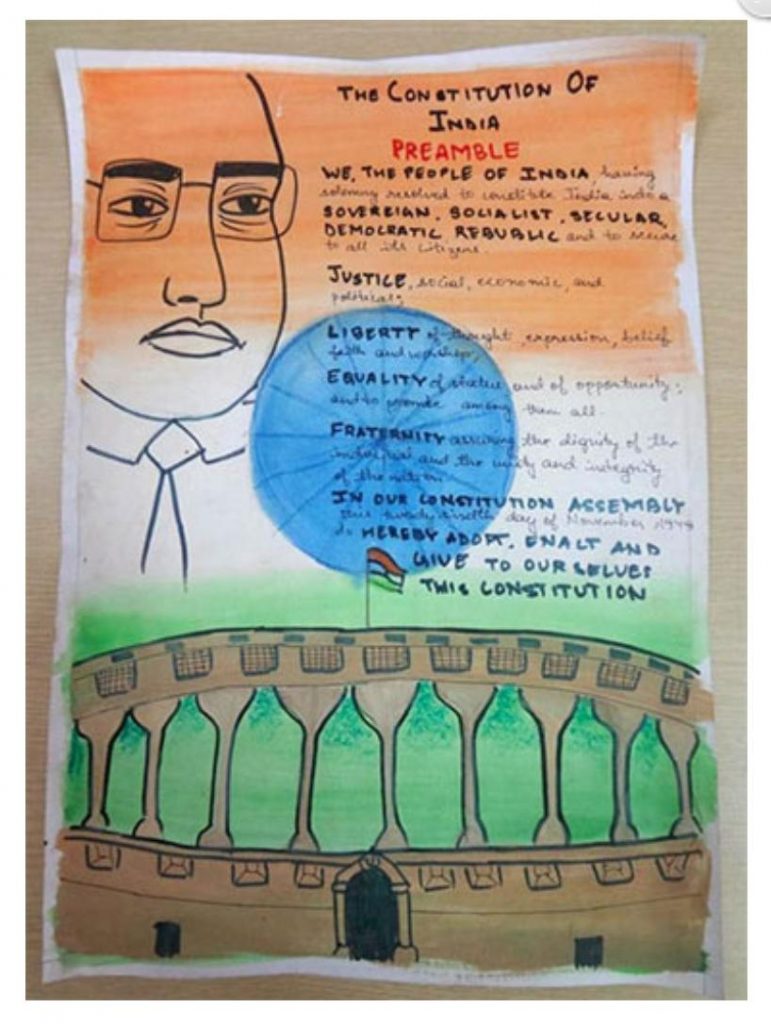 THE CONSTITUTION OF
INDIA
PREAMBLE
WE, THE PEOPLE OF INDIA, having
solemny resolved to constitute India into a
SOVEREIGN, SOCIALIST, SECULAR,
DEMOCRATIC REPUBLIC and to secure
to all its citizens.
JUSTICE, social, economic, and
political;
LIBERTY of thought, expression, belief
faith and worship;
EQUALITY of status and of opportunity;
and to promote among them all.
FRATERNITY assuring the dignity of the
individual and the unity and integrity
of the nation
IN OUR CONSTITUTION ASSEMBLY
this day of November 1949
do HEREBY ADOPT, ENALT AND
GIVE TO OURSELVES
THIS CONSTITUTION